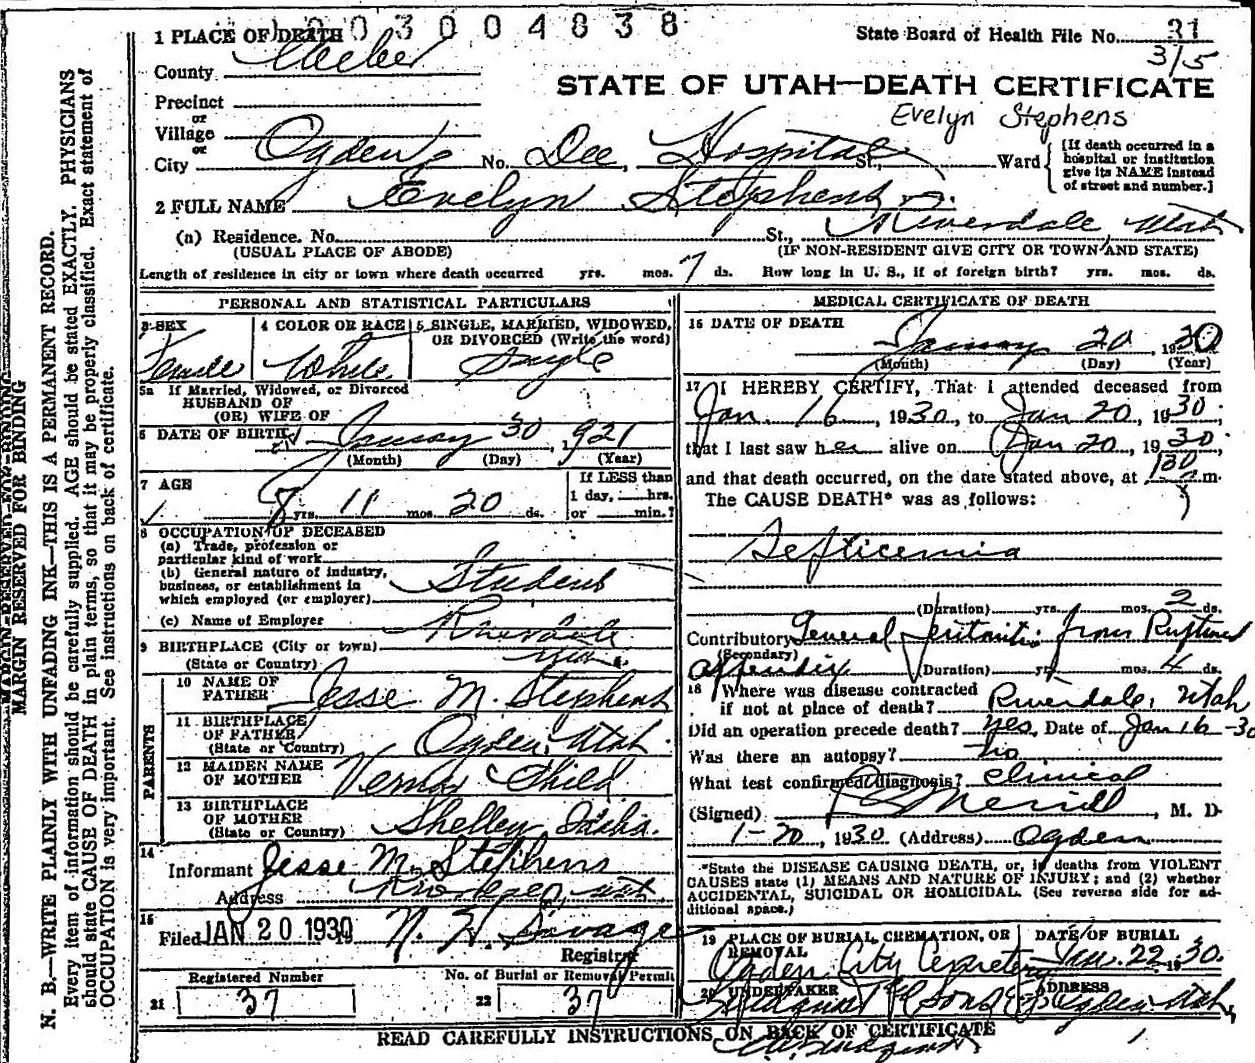 1 PLACE OF DEATH 2 0 3 0 0 4 8 3 8
State Board of Health File No. 31
315
County Weber
STATE OF UTAH—DEATH CERTIFICATE
Precinct
or
Village
or
Evelyn Stephens
City Ogden No. Dee Hospital St., Ward
[If death occurred in a hospital or institution give its NAME instead of street and number.]
2 FULL NAME Evelyn Stephens
(a) Residence. No. St., Riverdale, Utah
(USUAL PLACE OF ABODE) (IF NON-RESIDENT GIVE CITY OR TOWN AND STATE)
Length of residence in city or town where death occurred yrs. mos. 7 ds. How long in U. S., if of foreign birth? yrs. mos. ds.
PERSONAL AND STATISTICAL PARTICULARS
3 SEX Female
4 COLOR OR RACE White
5 SINGLE, MARRIED, WIDOWED, OR DIVORCED (Write the word) Single
5a If Married, Widowed, or Divorced
HUSBAND OF
(OR) WIFE OF
6 DATE OF BIRTH January 30, 1921
(Month) (Day) (Year)
7 AGE 8 yrs. 11 mos. 20 ds.
If LESS than
1 day, hrs.
or min.?
8 OCCUPATION OF DECEASED
(a) Trade, profession or
particular kind of work
(b) General nature of industry,
business, or establishment in
which employed (or employer) Student
(c) Name of Employer
9 BIRTHPLACE (City or town) Riverdale
(State or Country) Utah
PARENTS
10 NAME OF FATHER Jesse M. Stephens
11 BIRTHPLACE OF FATHER (State or Country) Ogden, Utah
12 MAIDEN NAME OF MOTHER Child
13 BIRTHPLACE OF MOTHER (State or Country) Shelley Idaho.
14 Informant Jesse M. Stephens
Address Utah
15 Filed JAN 20 1930 N. H. Savage
Registrar
Registered Number
21 37
No. of Burial or Removal Permit
22 37
MEDICAL CERTIFICATE OF DEATH
16 DATE OF DEATH January 20, 1930
(Month) (Day) (Year)
17 I HEREBY CERTIFY, That I attended deceased from
Jan. 16, 1930, to Jan 20, 1930.
that I last saw her alive on Jan 20, 1930.
and that death occurred, on the date stated above, at 130 m.
The CAUSE DEATH* was as follows:
Septicemia
(Duration) yrs. mos. 2 ds.
Contributory General Peritonitis from Ruptured
(Secondary)
appendix (Duration) yrs. mos. 4 ds.
18 Where was disease contracted
if not at place of death? Riverdale, Utah
Did an operation precede death? yes. Date of Jan 16-30
Was there an autopsy? no
What test confirmed diagnosis? clinical
(Signed) Merrill, M. D.
1-20, 1930 (Address) Ogden
*State the DISEASE CAUSING DEATH, or, in deaths from VIOLENT
CAUSES state (1) MEANS AND NATURE OF INJURY; and (2) whether
ACCIDENTAL, SUICIDAL OR HOMICIDAL. (See reverse side for ad-
ditional space.)
19 PLACE OF BURIAL, CREMATION, OR REMOVAL Ogden City Cemetery
DATE OF BURIAL Jan. 22, 1930.
20 UNDERTAKER & Sons
ADDRESS Ogden Utah
READ CAREFULLY INSTRUCTIONS ON BACK OF CERTIFICATE
MARGIN RESERVED FOR BINDING
MARGIN RESERVED FOR BINDING
N. B.—WRITE PLAINLY WITH UNFADING INK—THIS IS A PERMANENT RECORD.
Every item of information should be carefully supplied. AGE should be stated EXACTLY. PHYSICIANS
should state CAUSE OF DEATH in plain terms, so that it may be properly classified. Exact statement of
OCCUPATION is very important. See instructions on back of certificate.